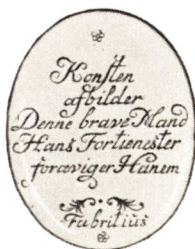 Konsten
afbilder
Denne brave Mand
Hans Fortienester
foræviger Hanem
Fabritius